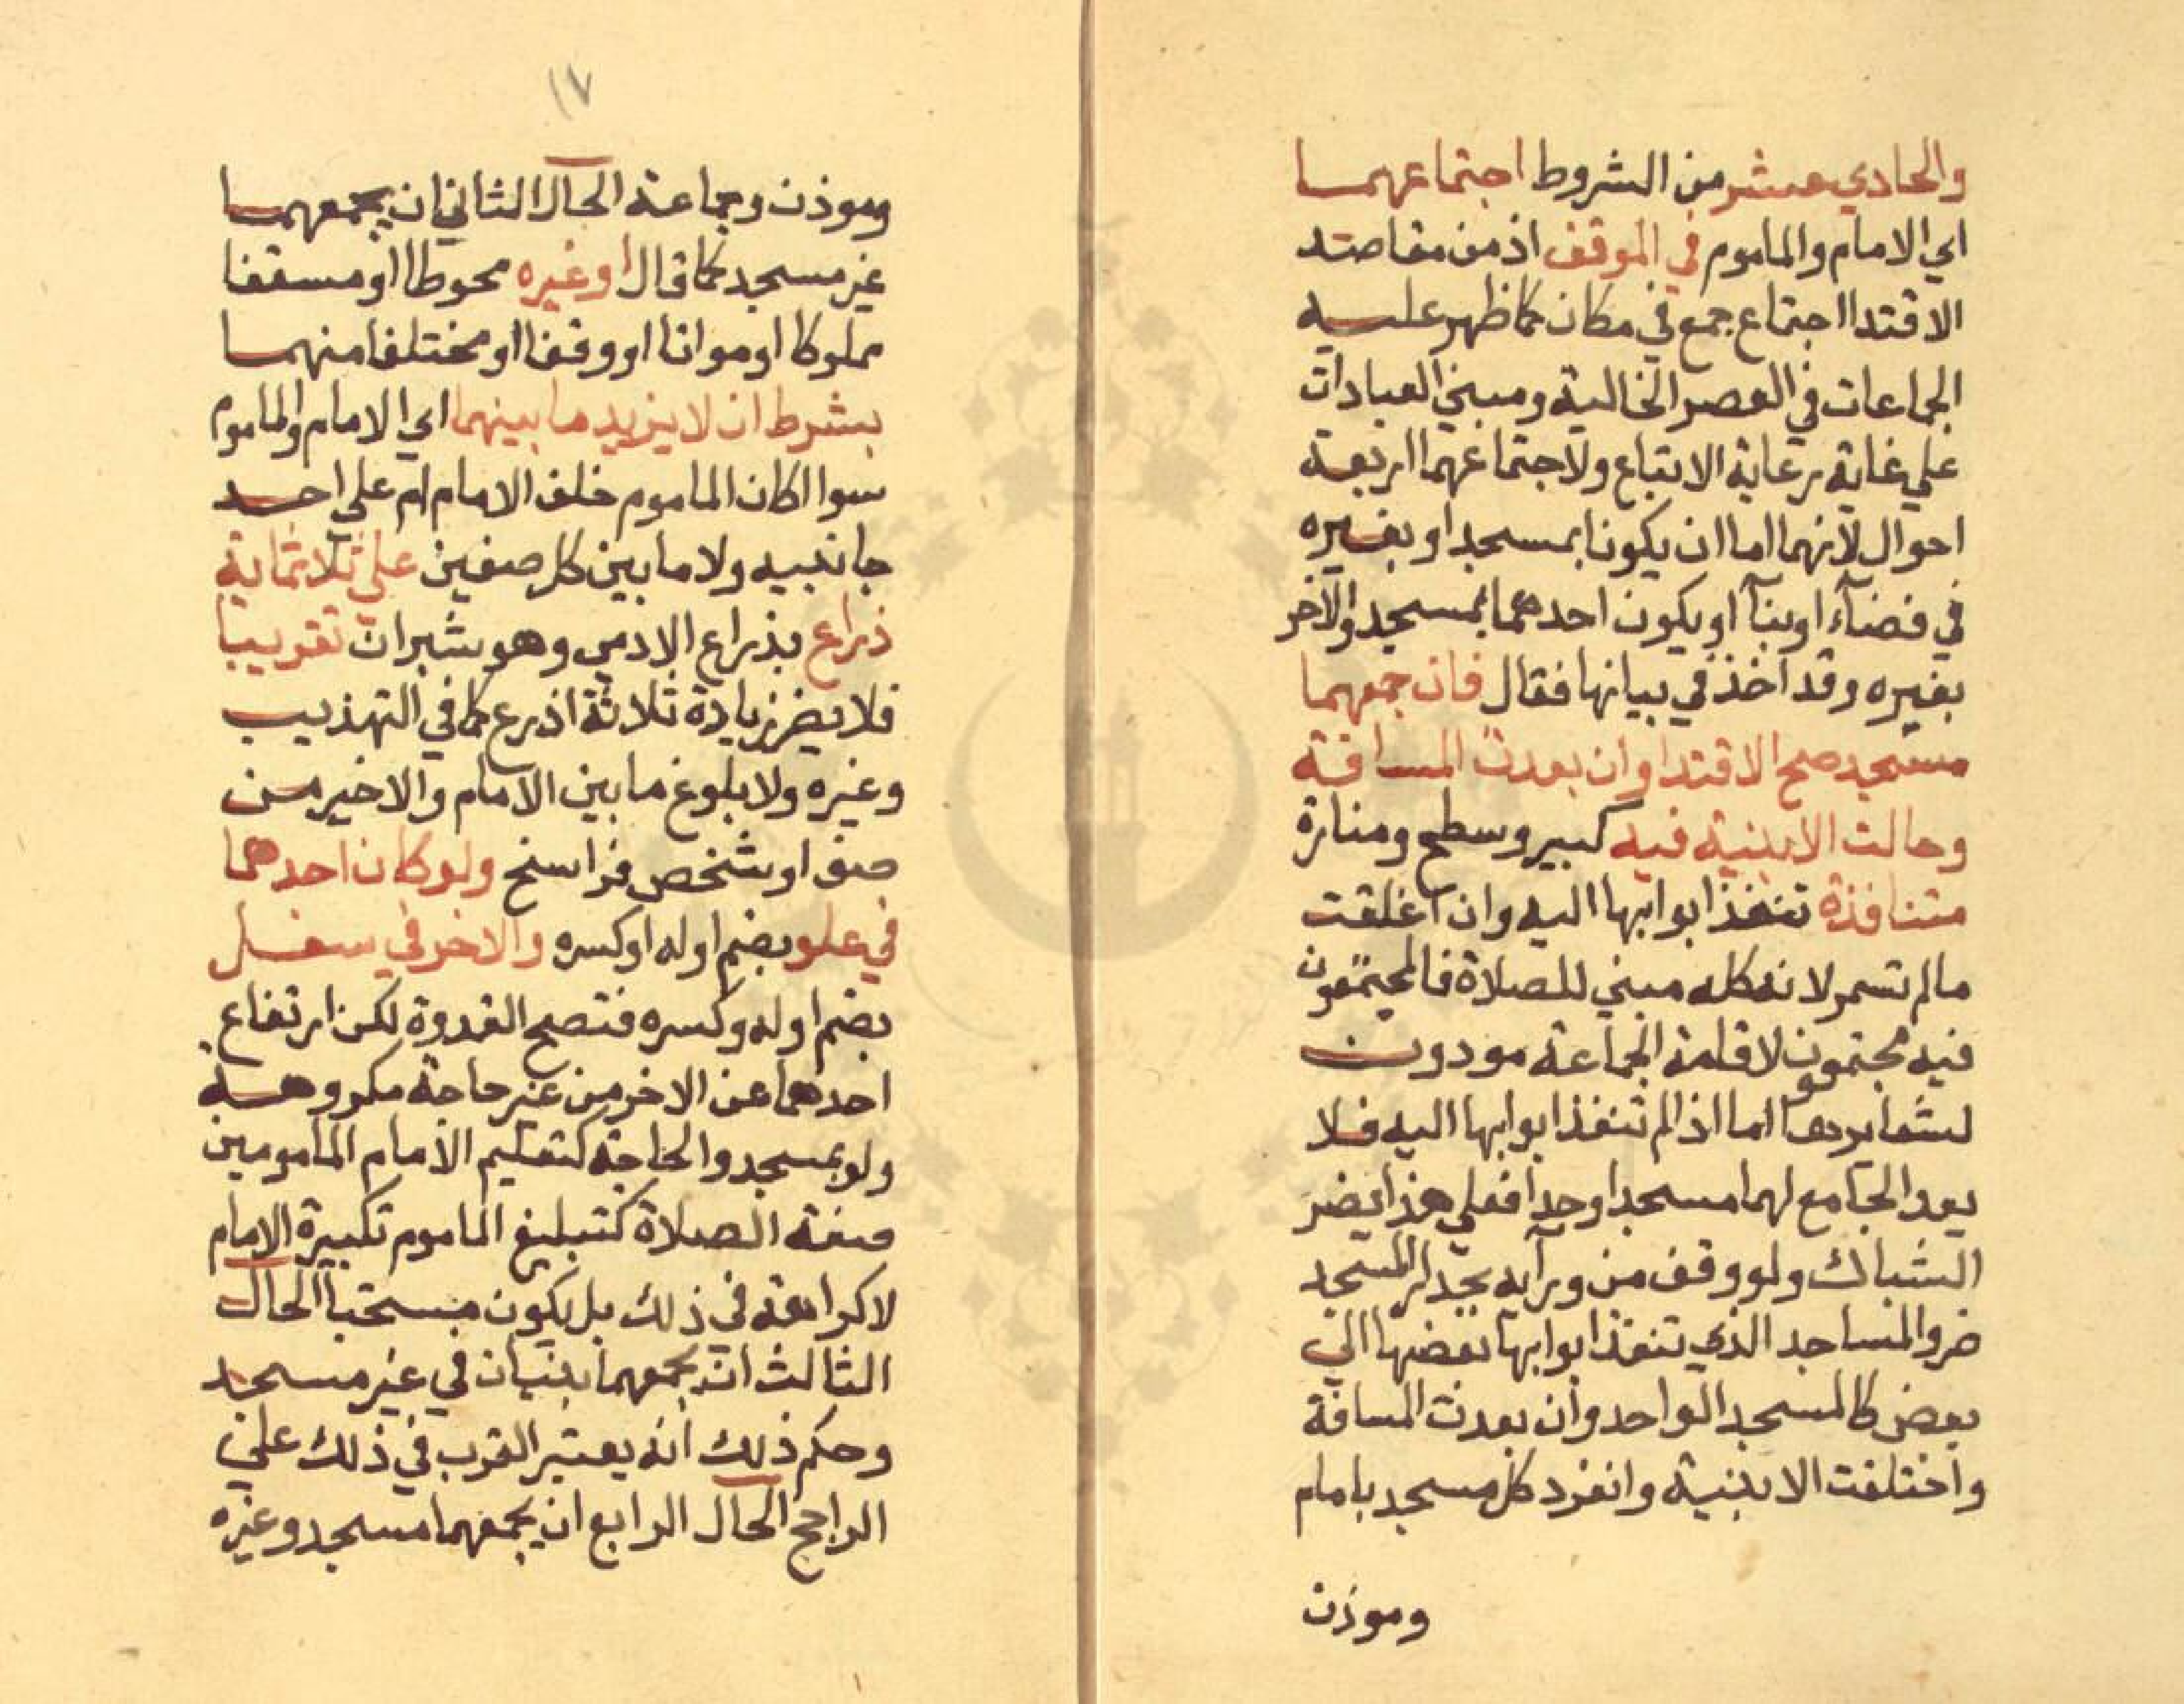 والحادي عشر من الشروط اجتماعهما
اي الامام والماموم في الموقف اذ من مقاصد
الاقتدا اجتماع جمع في مكان كما ظهر عليه
الجماعات في العصر الخالية ومبني العبادات
علي غاية رعاية الاتباع ولاجتماعهما اربعة
احوال لانهما اما ان يكونا بمسجد او بغيره
في فضآء او بنآ او يكون احدهما بمسجد والاخر
بغيره وقد اخذ في بيانها فقال فان جمعهما
مسجد صح الاقتدا وان بعدت المسافة
وحالت الابنية فيه كبير وسطح ومنارة
متنافذة تنفذ ابوابها اليه وان اغلقت
مالم تسمر لانه كله مبني للصلاة فالمجتمعون
فيه مجتمعون لاقامة الجماعة مودون
لشعايرها اما اذا لم تنفذ ابوابها اليه فلا
يعد الجامع لهما مسجدا واحدا فعلي هذا يضر
الشباك ولو وقف من ورآيه بجدار المسجد
ضر والمساجد الذي تنفذ ابوابها بعضها الي
بعض كالمسجد الواحد وان بعدت المسافة
واختلفت الابنية وانفرد كل مسجد بامام
وموذن
١٧
وموذن وجماعة الحال الثاني ان يجمعهما
غير مسجد كما قال او غيره محوطا او مسقفا
مملوكا او مواتا او وقفا او مختلفا منهما
بشرط ان لا يزيد ما بينهما اي الامام والماموم
سوا اكان الماموم خلف الامام ام علي احد
جانبيه ولا ما بين كل صفين علي ثلاثماية
ذراع بذراع الادمي وهو شبران تقريبا
فلا يضر زيادة ثلاثة اذرع كما في التهذيب
وغيره ولا بلوغ ما بين الامام والاخير من
صف او شخص فراسخ ولو كان احدهما
في علو بضم اوله او كسره والاخر في سفل
بضم اوله وكسره فتصح القدوة لكن ارتفاع
احدهما عن الاخر من غير حاجة مكروهة
ولو بمسجد والحاجة كتعليم الامام المامومين
صفة الصلاة كتبليغ الماموم تكبيرة الامام
لا كراهة في ذلك بل يكون مستحبا الحال
الثالث ان يجمعهما بنيان في غير مسجد
وحكم ذلك انه يعتبر القرب في ذلك علي
الراجح الحال الرابع ان يجمعهما مسجد وغيره